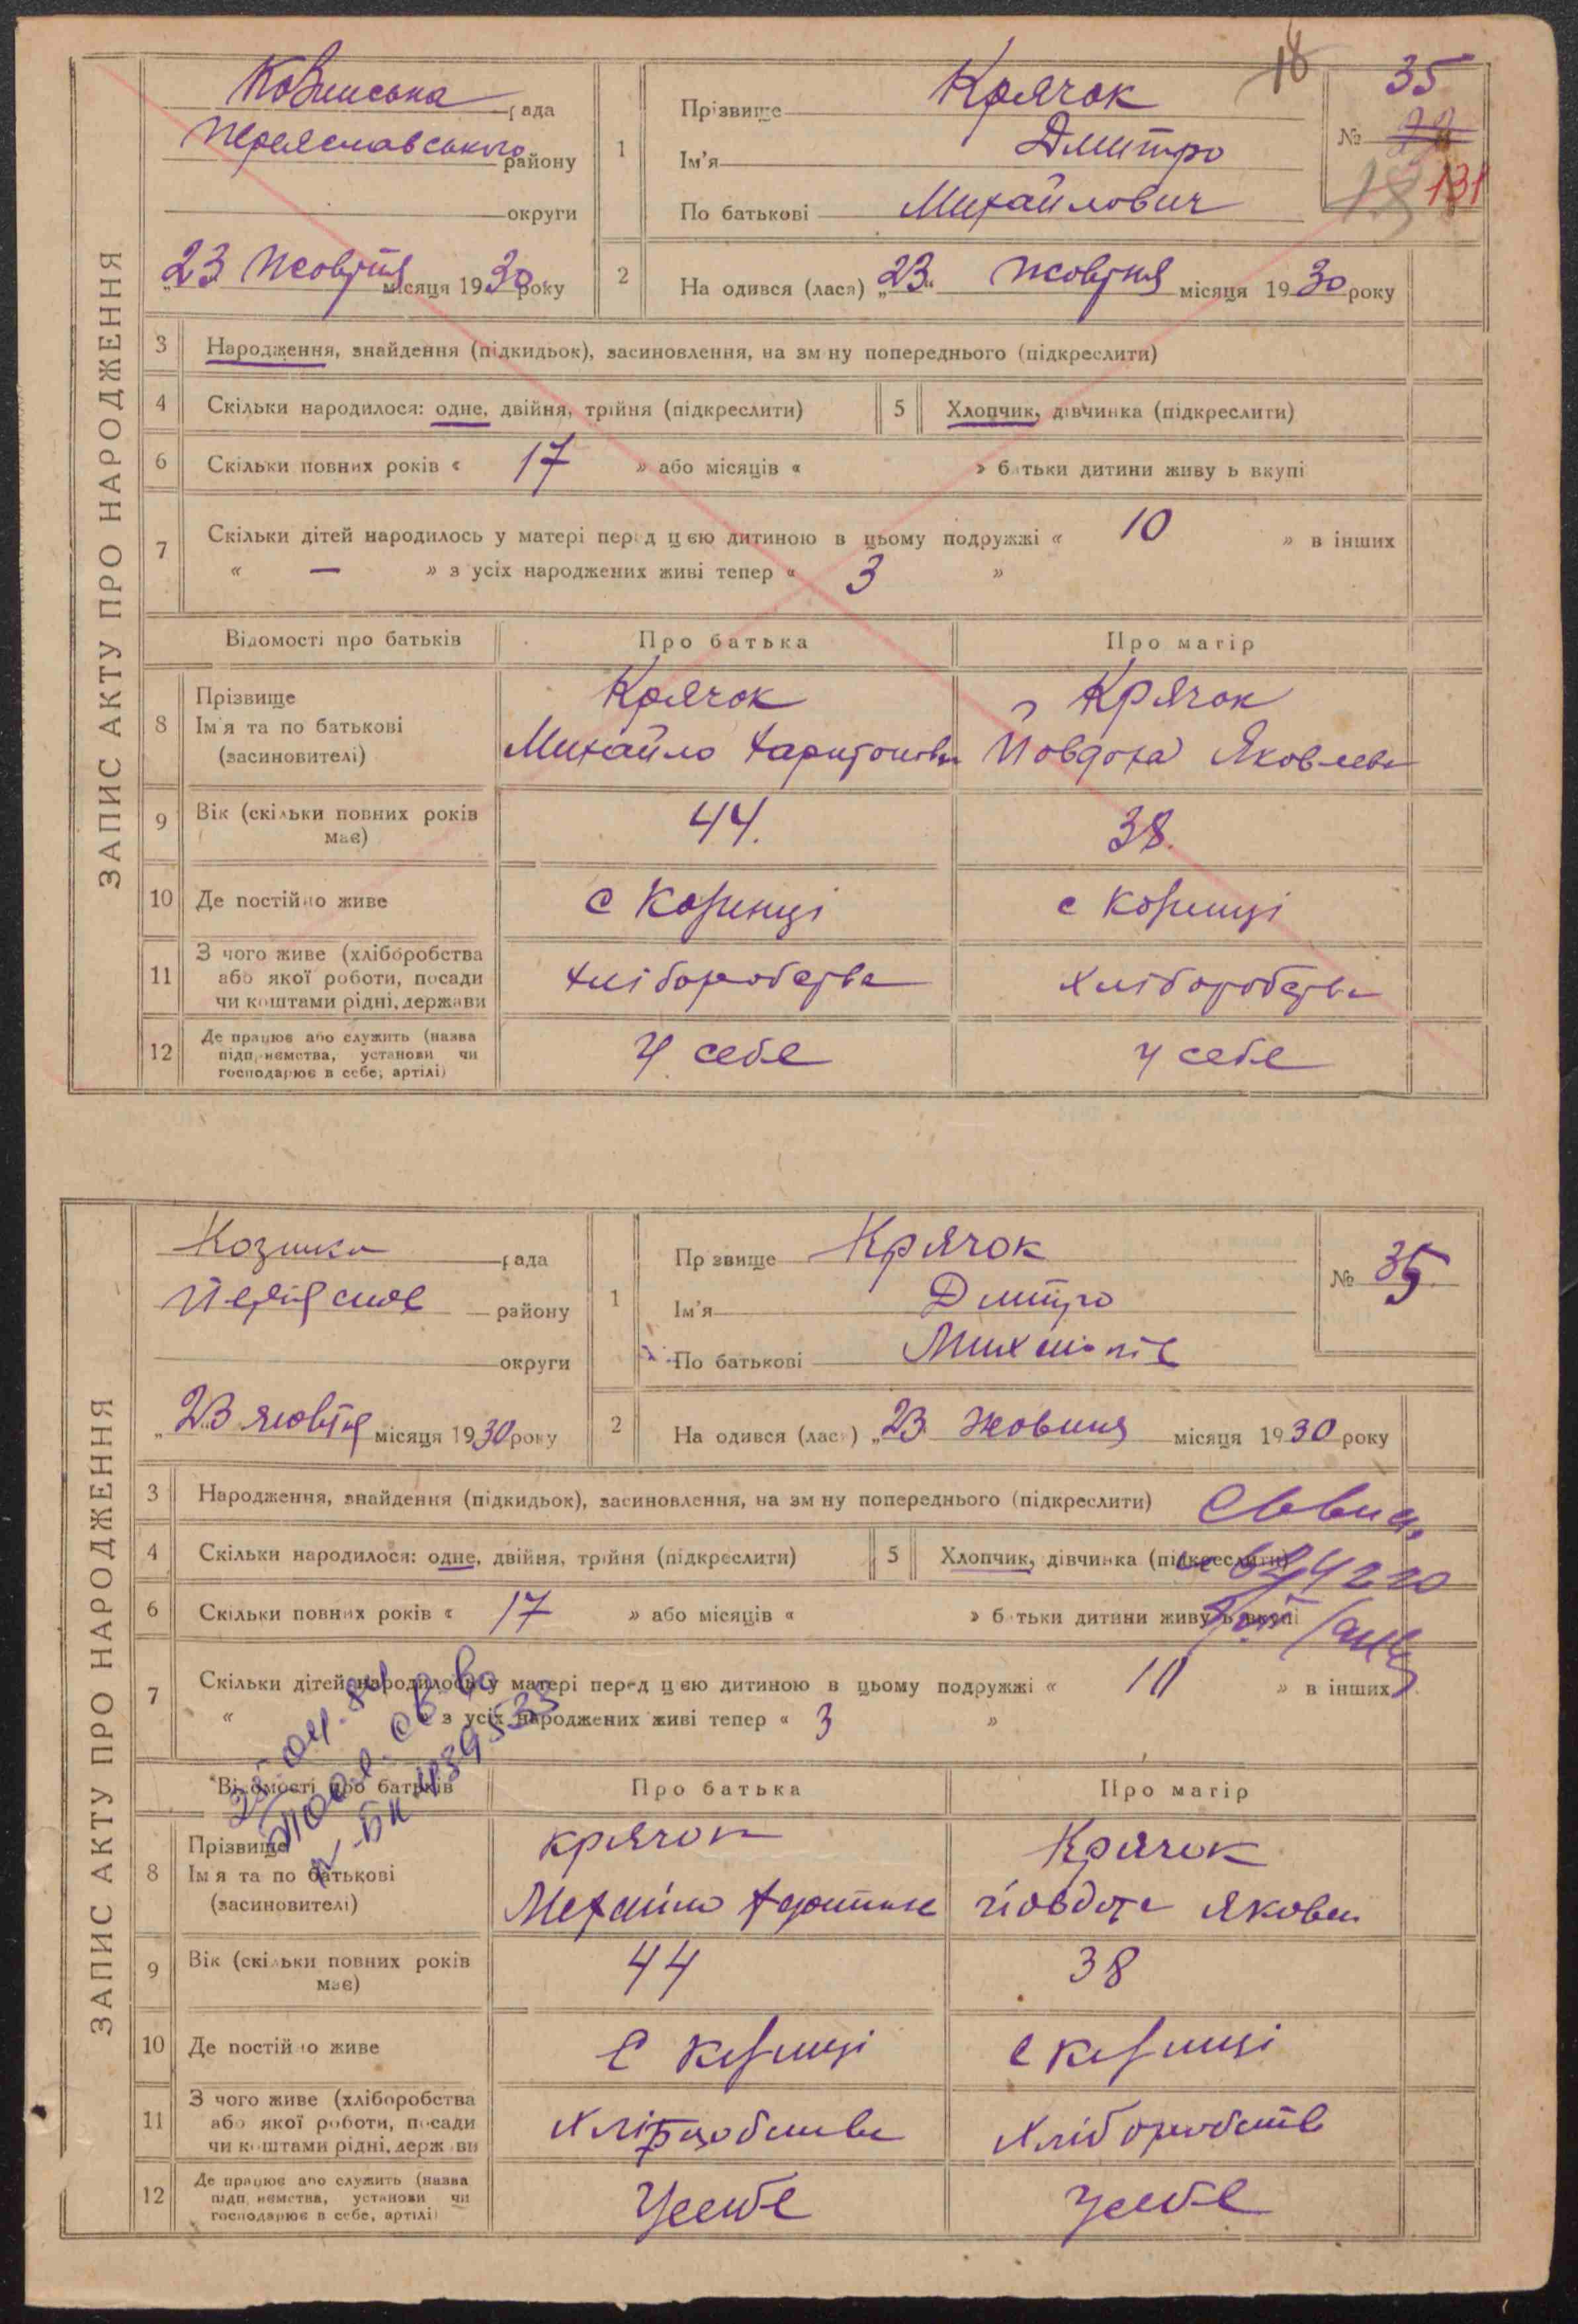 ЗАПИС АКТУ ПРО НАРОДЖЕННЯ
рада
Переяславського району
округи
23 Жовтня місяця 1930 року
1
Прізвище Крячок
Ім'я Дмитро
По батькові Михайлович
18
35
№
131
2
На одився (лася) „23" жовтня місяця 1930 року
3 Народження, знайдення (підкидьок), засиновлення, на зм ну попереднього (підкреслити)
4 Скільки народилося: одне, двійня, трійня (підкреслити)
5 Хлопчик, дівчинка (підкреслити)
6 Скільки повних років « 17 » або місяців « » батьки дитини живу ь вкупі
7 Скільки дітей народилось у матері перед цєю дитиною в цьому подружжі « 10 » в інших
« — » з усіх народжених живі тепер « 3 »
Відомості про батьків Про батька Про матір
8 Прізвище Крячок Крячок
Ім'я та по батькові Михайло Йовдоха Яковлева
(засиновителі)
9 Вік (скільки повних років має) 44. 38.
10 Де постійно живе с
11 З чого живе (хліборобства або якої роботи, посади чи коштами рідні, держави хліборобства хліборобства
12 Де працює або служить (назва підприємства, установи чи господарює в себе, артілі) У себе у себе
ЗАПИС АКТУ ПРО НАРОДЖЕННЯ
рада
району
округи
„23 жовтня місяця 1930 року
1
Пр звище Крячок
Ім'я Дмитро
По батькові
№ 35
2
На одився (лас ) „23 жовтня місяця 1930 року
3 Народження, знайдення (підкидьок), засиновлення, на зм ну попереднього (підкреслити)
4 Скільки народилося: одне, двійня, трійня (підкреслити)
5 Хлопчик, дівчинка (підкреслити)
6 Скільки повних років « 17 » або місяців « » б тьки дитини живу ь вкупі
7 Скільки дітей народилось у матері перед цєю дитиною в цьому подружжі « » в інших
« » з усіх народжених живі тепер « 3 »
Відомості про батьків Про батька Про матір
8 Прізвище крячок Крячок
Ім'я та по батькові
(засиновителі)
9 Вік (скільки повних років має) 44 38
10 Де постійно живе с
11 З чого живе (хліборобства або якої роботи, посади чи коштами рідні, держ ви
12 Де працює або служить (назва підп иємства, установи чи господарює в себе, артілі) У себе У себе